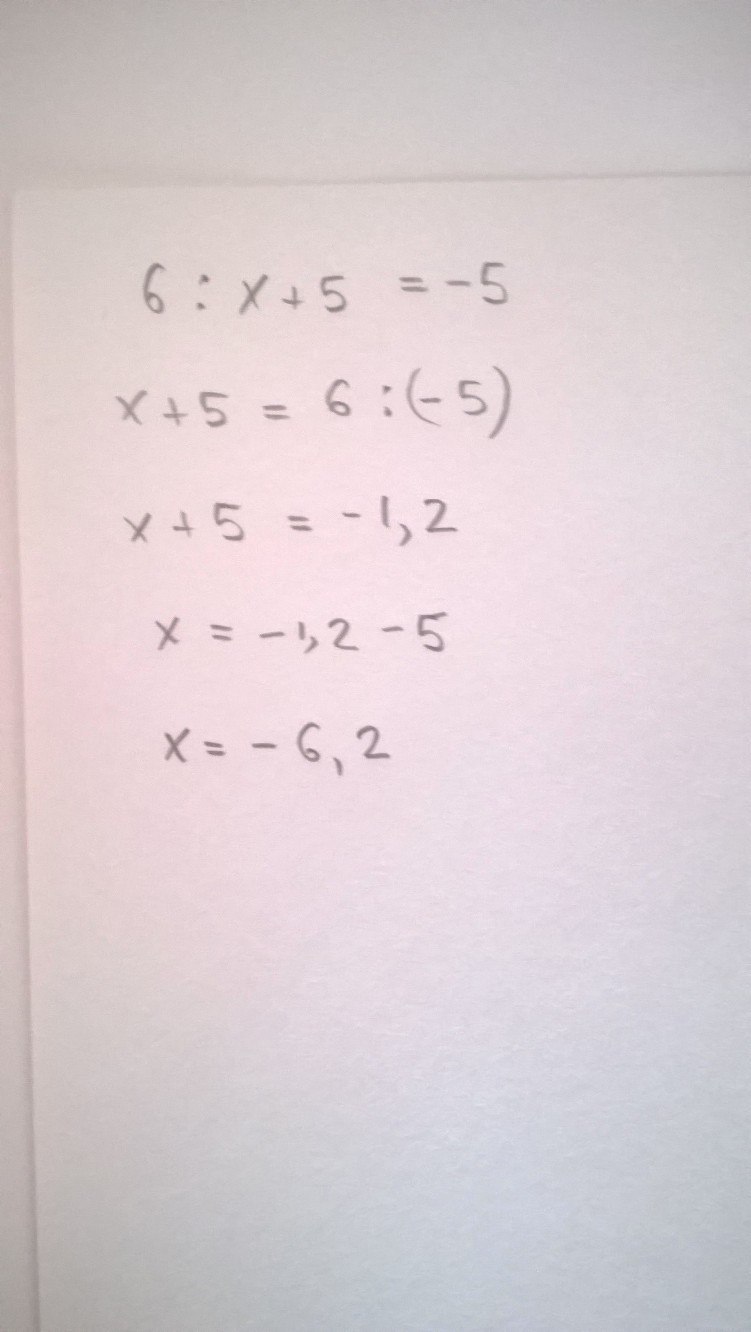 6 : x + 5 = -5
x + 5 = 6 : (-5)
x + 5 = -1,2
x = -1,2 - 5
x = -6,2